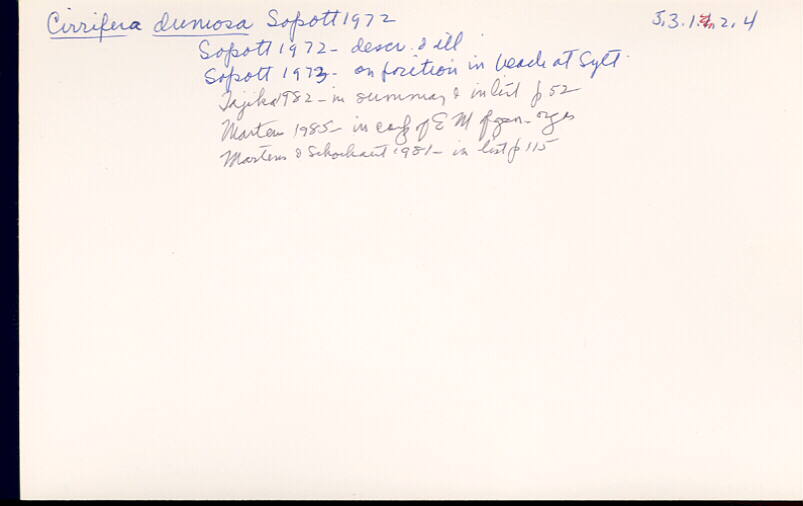 Cirrifera dumosa Sopott 1972 5.3.1.2.4
Sopott 1972 - descr. & ill
Sopott 1973 - on position in beach at Sylt.
Tajika 1982 - in summary & in list p 52
Martens 1985 - in of EM of gen. orgs
Martens & Schockaert 1981 - in list p 115